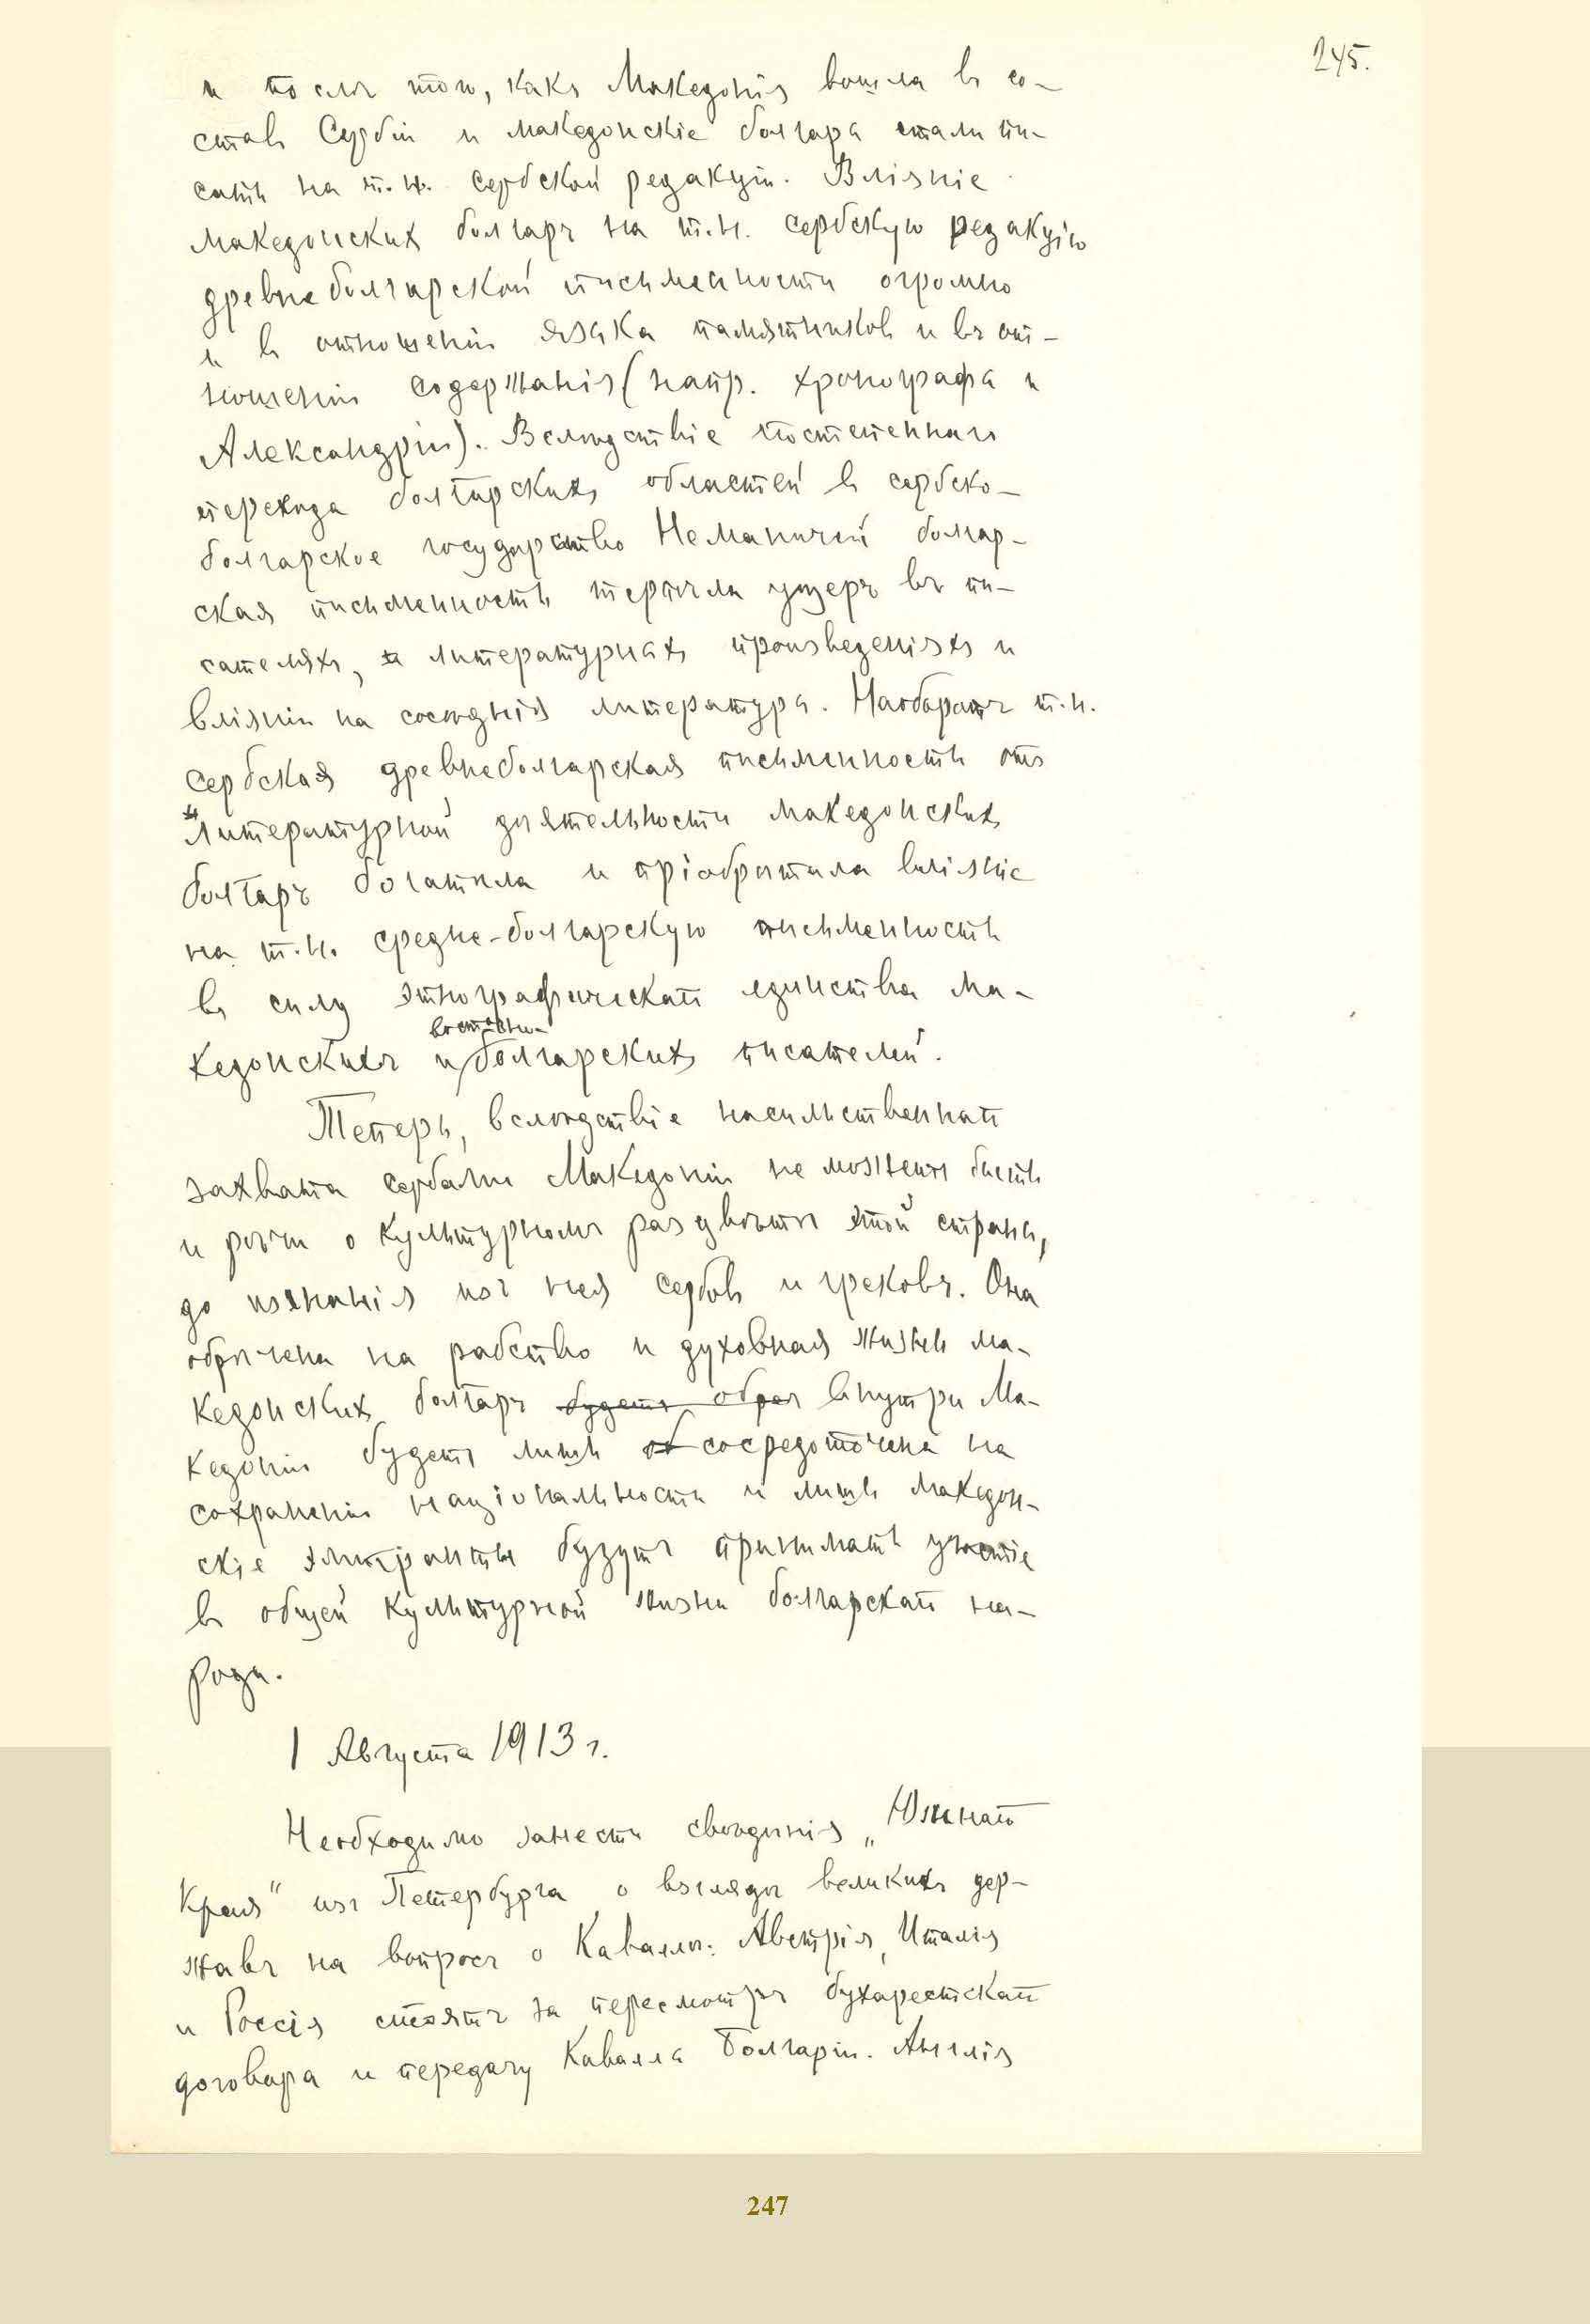 245.
и послѣ того, какъ Македонія вошла въ со-
ставъ Сербіи и македонскіе болгары стали пи-
сать на т.н. сербской редакціи. Вліяніе
македонскихъ болгаръ на т.н. сербскую редакцію
древнеболгарской письменности огромно
и въ отношеніи языка памятниковъ и въ от-
ношеніи содержанія (напр. хронографа и
Александріи). Вслѣдствіе постепеннаго
перехода болгарскихъ областей въ сербско-
болгарское государство Неманичей болгар-
ская письменность терпѣла ущербъ въ пи-
сателяхъ, литературныхъ произведеніяхъ и
вліяніи на сосѣднія литературы. Наоборотъ т.н.
сербская древнеболгарская письменность отъ
литературной дѣятельности македонскихъ
болгаръ богатѣла и пріобрѣтала вліяніе
на т.н. средне-болгарскую письменность
въ силу этнографическаго единства ма-
восточно-
кедонскихъ и болгарскихъ писателей.
Теперь, вслѣдствіе насильственнаго
захвата сербами Македоніи не можетъ быть
и рѣчи о культурномъ разцвѣтѣ этой страны,
до изгнанія изъ нея сербовъ и грековъ. Она
обрѣчена на рабство и духовная жизнь ма-
кедонскихъ болгаръ будетъ обреч внутри Ма-
кедоніи будетъ лишь об сосредоточена на
сохраненіи національности и лишь македон-
скіе эмигранты будутъ принимать участіе
въ общей культурной жизни болгарскаго на-
рода.
1 Августа 1913 г.
Необходимо занести свѣдѣнія „Южнаго
Края" изъ Петербурга о взглядѣ великихъ дер-
жавъ на вопросъ о Каваллѣ: Австрія, Италія
и Россія стоятъ за пересмотръ бухарестскаго
договора и передачу Каваллы Болгаріи. Англія
247